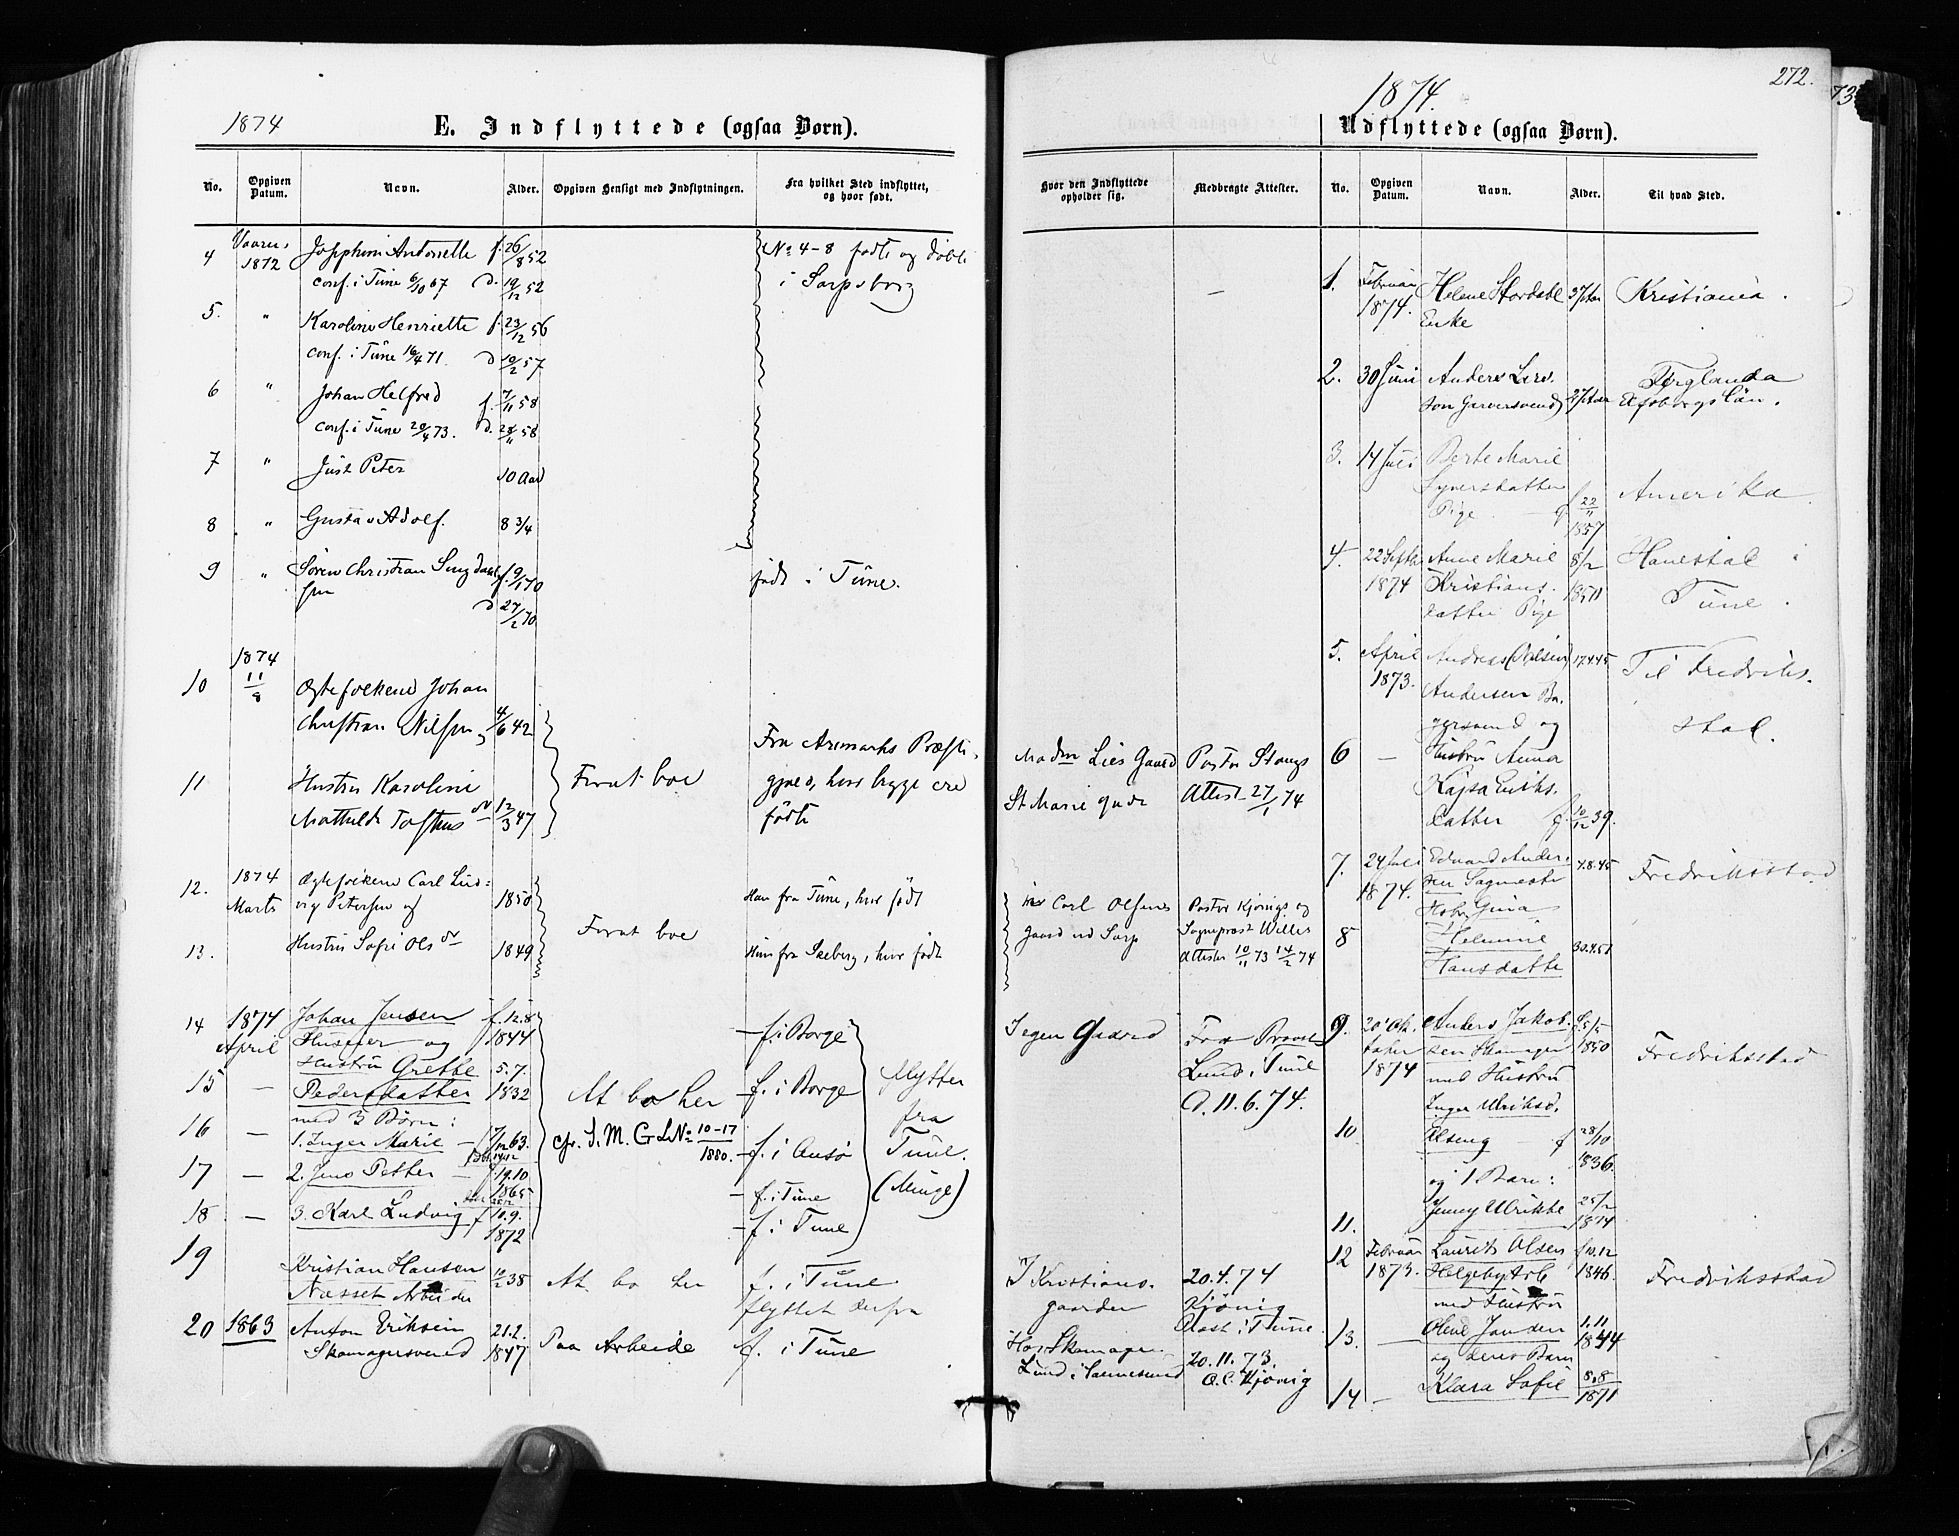 1874
E. Indflyttede (ogsaa Børn).
No.
Opgiven Datum.
Navn.
Alder.
Opgiven Hensigt med Indflytningen.
Fra hvilket Sted indflyttet, og hvor født.
4
Vaaren 1872
Josephine Antonette f. 26/8 52
conf. i Tune 6/10 67 d. 19/12 52
No 4-8 födte og döbte
i Sarpsborg
5.
"
Karoline Henriette f. 23/12 56
conf. i Tune 16/4 71. d 10/2 57
6
"
Johan Helfred f. 7/11 58
conf. i Tune 20/4 73. d. 28/11 58
7
"
Just Peter
10 Aar
8
"
Gustav Adolf.
8 3/4
9
"
Sören Christian
f. 9/1 70
d 27/2 70
født i Tune.
10
1874
11/8
Ægtefolkene Johan
Christian Nilsen
4/6 42
11
Hustru Karoline
Mathilde
12/3 47
For at boe
Fra Aremarks Præste-
gjæld, hvor begge ere
födte
12.
1874
Marts
Ægtefolkene Carl Lud-
vig Petersen og
1850
Han fra Tune, hvor født
For at boe
13.
Hustru Sofie Ols dr
1849
Hun fra Skeberg, hvor født
14
1874
April
Johan Jensen
f. 12.8
1844
Huseier og
Hustru Grethe
5.7.
15
—
Pedersdatter
1832
med 3 Børn:
16
—
1. Inger Marie
17
—
2. Jens Petter
f. 19.10
1865
18
—
3. Karl Ludvig f
10.9.
1872
At bo her
cfr. S. M. G LNo 10-17
1880.
f. i Borge
f. i Borge
f. i
f. i Tune
f. i Tune
flytter
fra
Tune.
(Minge)
19
Kristian Hansen
Næsset Arbeider
10/2 38
At bo her
f. i Tune
flyttet derfra
20
1863
Anton Eriksen
Skomagersvend
21.2.
1847
Paa Arbeide
f. i Tune
272.
73
1874.
Udflyttede (ogsaa Børn).
Hvor den Indflyttede opholder sig.
Medbragte Attester.
No.
Opgiven Datum.
Navn.
Alder.
Til hvad Sted.
Gaard
St Marie gade
Pastor Stangs
Attest 27/1 74
Carl Olsens
Gaard ved Sarp
Pastor Kjönigs og
Sognepræst Willes
Attester 10/11 73 14/2 74
I egen Gaard
Fra Provst
Lund i Tune
d. 11.6.74.
I Kristians-
gaarden
20.4.74
Kjönig
Past i Tune.
Hos Skomager
Lund i
20.11.73.
O.C. Kjönig
1.
Februar
1874.
Helene Stordahl
Enke
37 Aar
Kristiania.
2.
30 Juni
Anders Lars-
son Garversvend
27 Aar
Elfsborgs län.
3.
14 Juli
Berte Marie
Syversdatter
Pige
f 22/11
1857
Amerika.
4.
22 Septbr
1874
Anne Marie
Kristians-
datter Pige
8/2
Hanestad i
Tune.
5.
April
1873.
Andreas (Nilsen)
Andersen Ba-
gersvend og
17.4.45
Til Fredriks-
stad.
6
—
Hustru Anna
Kajsa Eriks-
datter
f. 10/12 39.
7.
24 Juli
1874.
Edvard Ander-
sen Sagmester
4.8.45
Fredriksstad
8
Gina
Helmine
Hansdatter
30.4.51
9.
20 Ok-
tober
1874
Anders Jakob-
sen Skomager
med Hustru
Inger Ulriksd.
f. 5/5
1850
Fredriksstad
10
f
28/10
1836
og 1 Barn:
11.
Jenny Ulrikke
25/2
1874
12
Februar
1873.
Laurits Olsen
Helgeby Arb
med Hustru
f 10.12
1846.
Fredriksstad
13.
—
Olene
og deres Barn
1.11
1844
14
—
Klara Sofie
8.8
1871